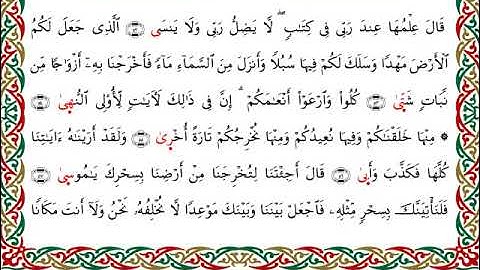 قَالَ عِلۡمُهَا عِندَ رَبِّي فِي كِتَٰبٖۖ لَّا يَضِلُّ رَبِّي وَلَا يَنسَى ٥٢ ٱلَّذِي جَعَلَ لَكُمُ
ٱلۡأَرۡضَ مَهۡدٗا وَسَلَكَ لَكُمۡ فِيهَا سُبُلٗا وَأَنزَلَ مِنَ ٱلسَّمَآءِ مَآءٗ فَأَخۡرَجۡنَا بِهِۦٓ أَزۡوَٰجٗا مِّن
نَّبَاتٖ شَتَّىٰ ٥٣ كُلُواْ وَٱرۡعَوۡاْ أَنۡعَٰمَكُمۡۚ إِنَّ فِي ذَٰلِكَ لَأٓيَٰتٖ لِّأُوْلِي ٱلنُّهَىٰ ٥٤
۞ مِنۡهَا خَلَقۡنَٰكُمۡ وَفِيهَا نُعِيدُكُمۡ وَمِنۡهَا نُخۡرِجُكُمۡ تَارَةً أُخۡرَىٰ ٥٥ وَلَقَدۡ أَرَيۡنَٰهُ ءَايَٰتِنَا
كُلَّهَا فَكَذَّبَ وَأَبَىٰ ٥٦ قَالَ أَجِئۡتَنَا لِتُخۡرِجَنَا مِنۡ أَرۡضِنَا بِسِحۡرِكَ يَٰمُوسَىٰ ٥٧
فَلَنَأۡتِيَنَّكَ بِسِحۡرٖ مِّثۡلِهِۦ فَٱجۡعَلۡ بَيۡنَنَا وَبَيۡنَكَ مَوۡعِدٗا لَّا نُخۡلِفُهُۥ نَحۡنُ وَلَآ أَنتَ مَكَانٗا